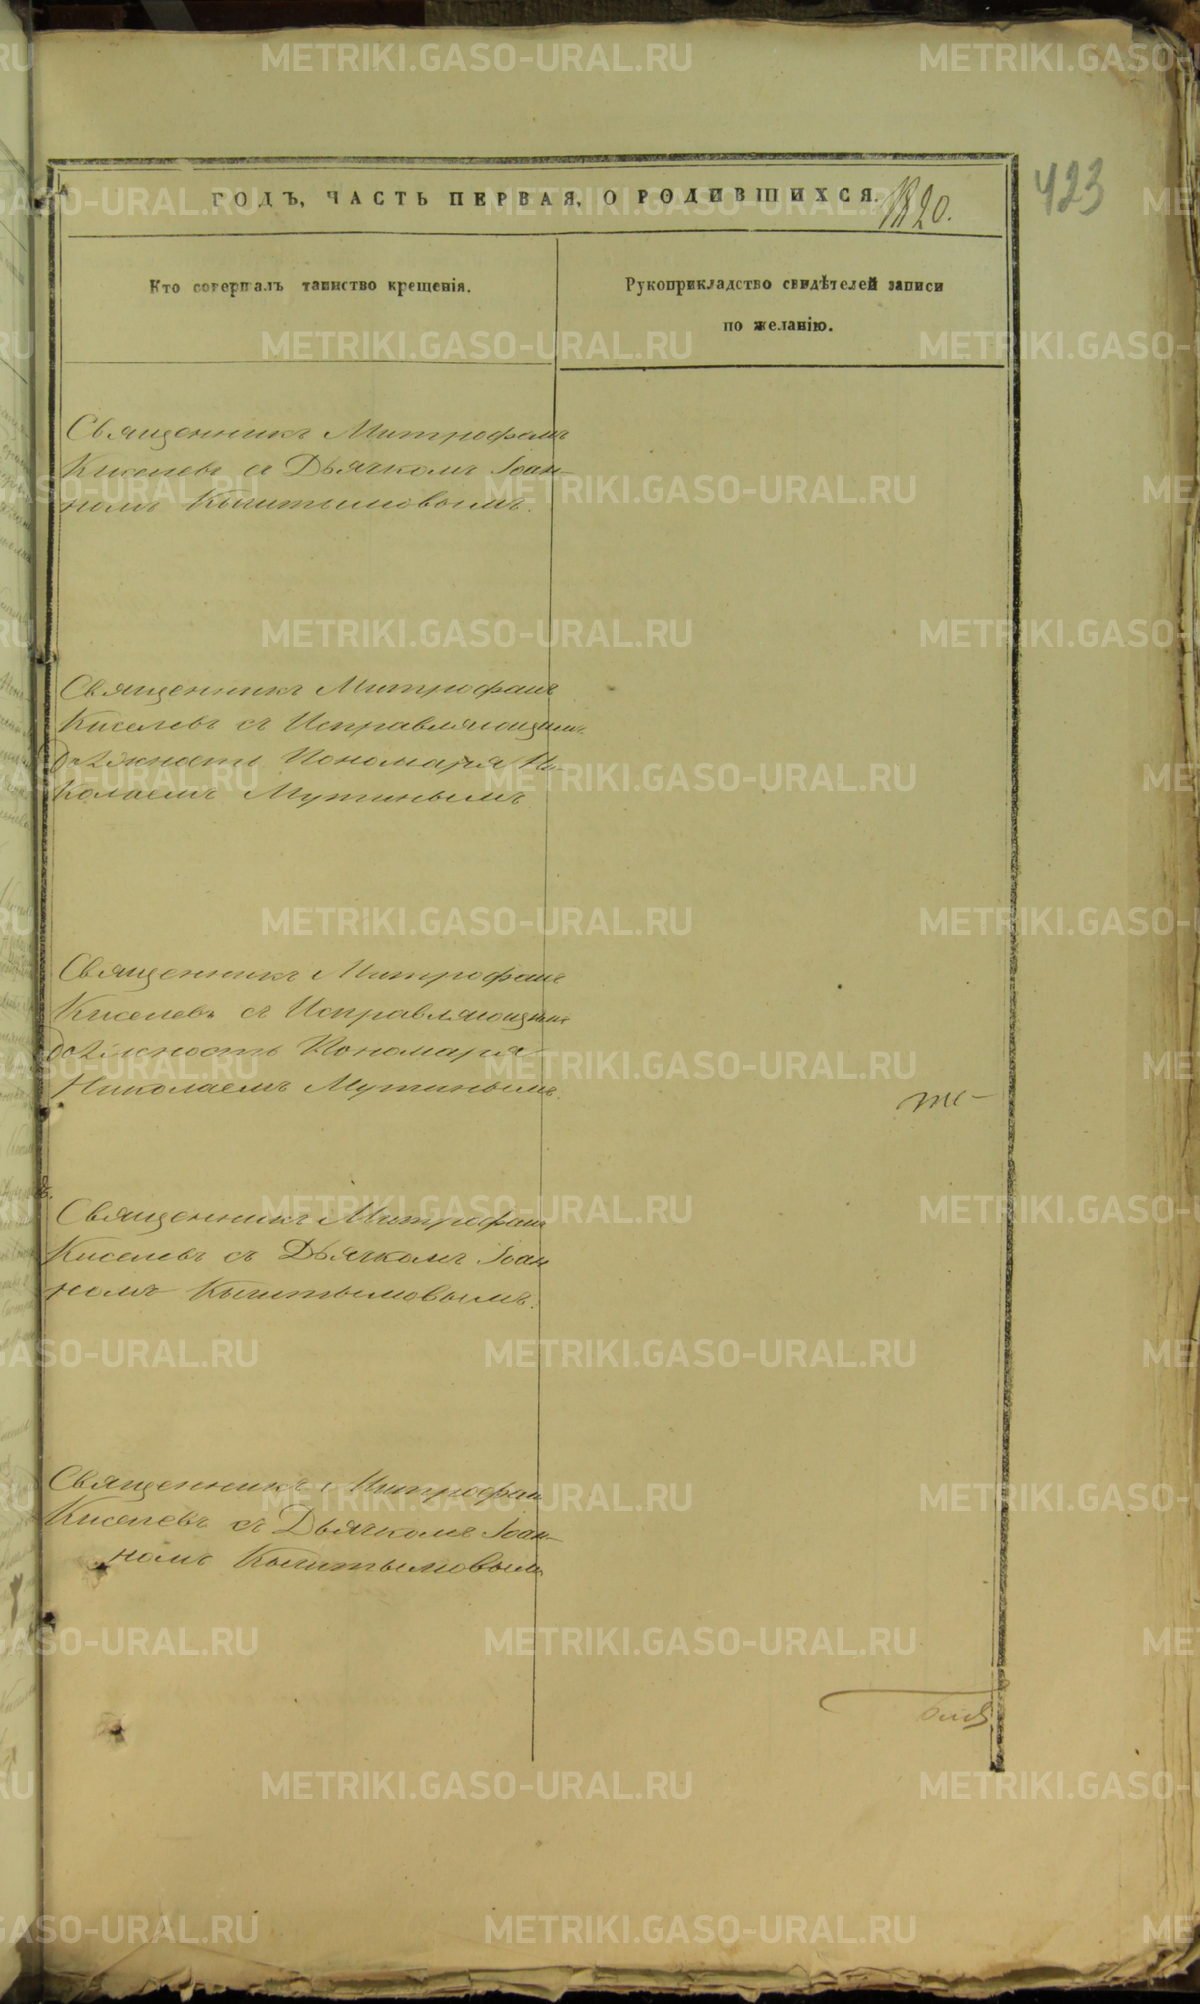 423
ГОДЪ, ЧАСТЬ ПЕРВАЯ, О РОДИВШИХСЯ.
Кто совершалъ таинство крещенія.
Рукоприкладство свидѣтелей записи
по желанію.
Священникъ Митрофанъ
Киселевъ съ Дьячкомъ Іоан-
номъ Кыштымовымъ.
Священникъ Митрофанъ
Киселевъ съ Исправляющимъ
должность Пономаря Ни-
колаемъ Мутинымъ
Священникъ Митрофанъ
Киселевъ съ Исправляющимъ
должность Пономаря
Николаемъ Мутинымъ.
Священникъ Митрофанъ
Киселевъ съ Дьячкомъ Іоан
номъ Кыштымовымъ.
Священникъ Митрофан
Киселевъ съ Дьячкомъ Іоан-
номъ Кыштымовым
METRIKI.GASO-URAL.RU